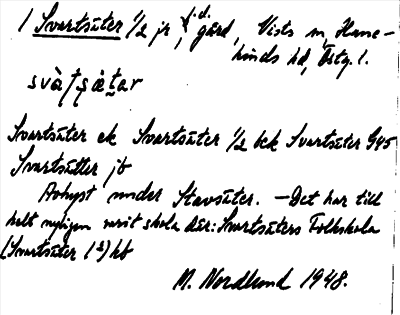 1 Svartsäter 1/2 jr, f.d. gård, Vists sn, Hane-
kinds hd, Östg. l.
Svartsäter ek Svartsäter 1/2 bck Svartsäter G45
Svartsätter jb
Avhyst under Stavsäter. – Det har till
helt nyligen varit skola där: Svartsäters Folkskola
(Svartsäter 1 ) hb
M. Nordlund 1948.